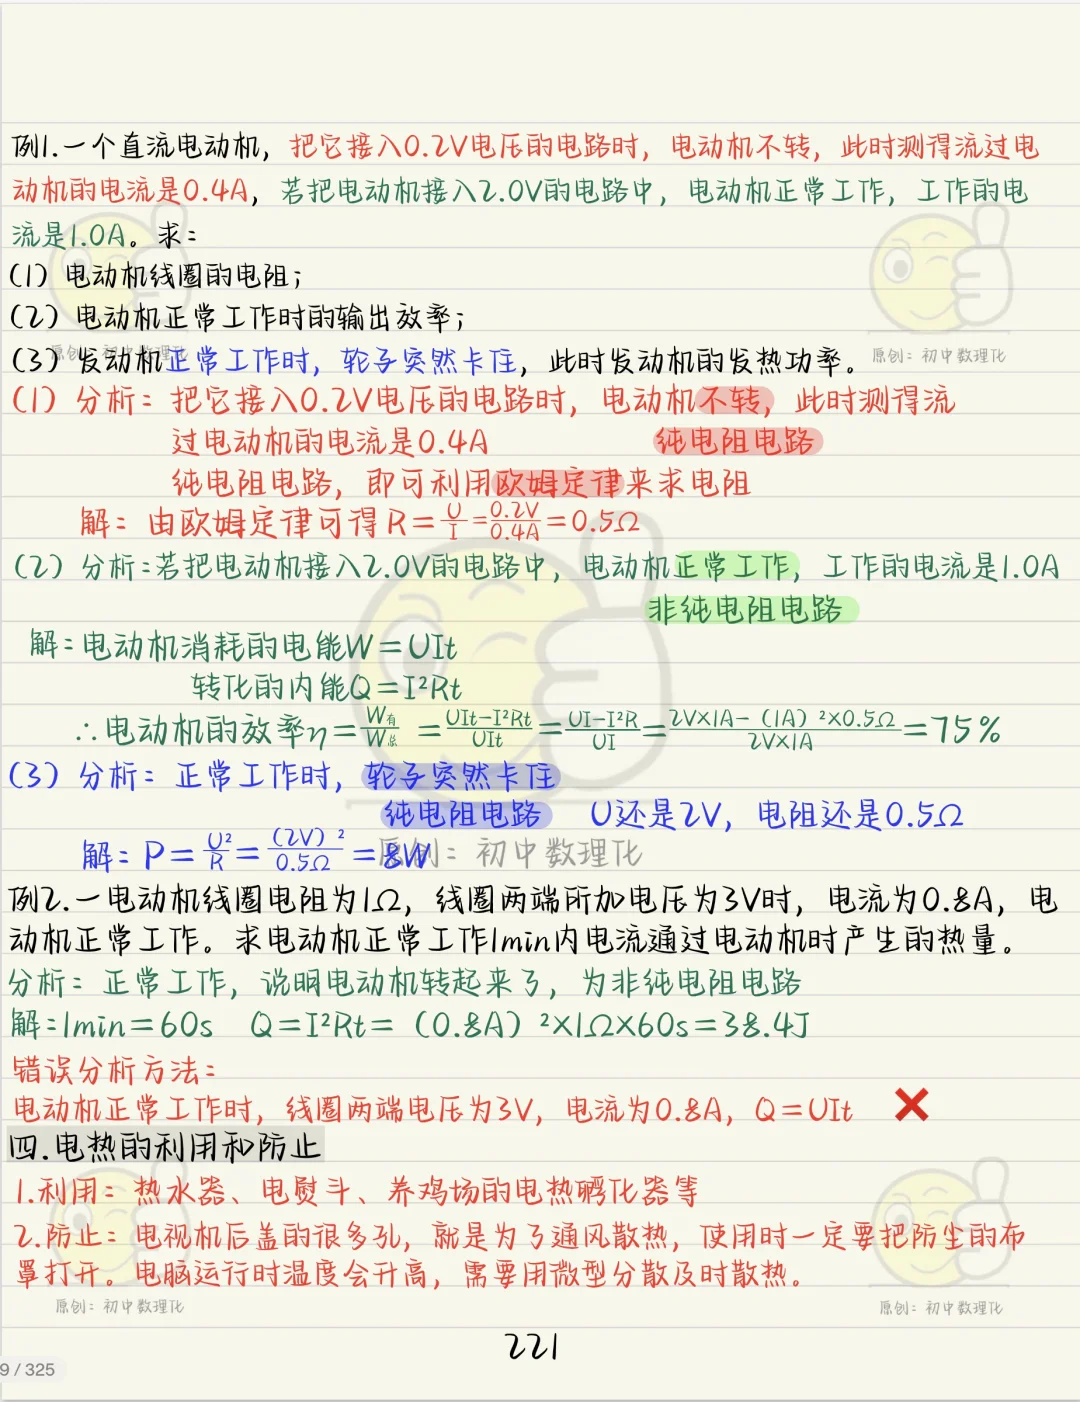 例1.一个直流电动机，把它接入0.2V电压的电路时，电动机不转，此时测得流过电
动机的电流是0.4A，若把电动机接入2.0V的电路中，电动机正常工作，工作的电
流是1.0A。求：
(1) 电动机线圈的电阻；
(2) 电动机正常工作时的输出效率；
(3) 发动机正常工作时，轮子突然卡住，此时发动机的发热功率。
原创：初中数理化
原创：初中数理化
(1) 分析：把它接入0.2V电压的电路时，电动机不转，此时测得流
过电动机的电流是0.4A 纯电阻电路
纯电阻电路，即可利用欧姆定律来求电阻
解：由欧姆定律可得R=U/I=0.2V/0.4A=0.5Ω
(2) 分析：若把电动机接入2.0V的电路中，电动机正常工作，工作的电流是1.0A
非纯电阻电路
解：电动机消耗的电能W=UIt
转化的内能Q=I²Rt
∴电动机的效率η=W有/W总=UIt-I²Rt/UIt=UI-I²R/UI=2V×1A-(1A)²×0.5Ω/2V×1A=75%
(3) 分析：正常工作时，轮子突然卡住
纯电阻电路 U还是2V，电阻还是0.5Ω
解：P=U²/R=(2V)²/0.5Ω=8W
原创：初中数理化
例2.一电动机线圈电阻为1Ω，线圈两端所加电压为3V时，电流为0.8A，电
动机正常工作。求电动机正常工作1min内电流通过电动机时产生的热量。
分析：正常工作，说明电动机转起来了，为非纯电阻电路
解：1min=60s Q=I²Rt=(0.8A)²×1Ω×60s=38.4J
错误分析方法：
电动机正常工作时，线圈两端电压为3V，电流为0.8A，Q=UIt ❌
四.电热的利用和防止
1.利用：热水器、电熨斗、养鸡场的电热孵化器等
2.防止：电视机后盖的很多孔，就是为了通风散热，使用时一定要把防尘的布
罩打开。电脑运行时温度会升高，需要用微型分散及时散热。
原创：初中数理化
原创：初中数理化
221
9 / 325